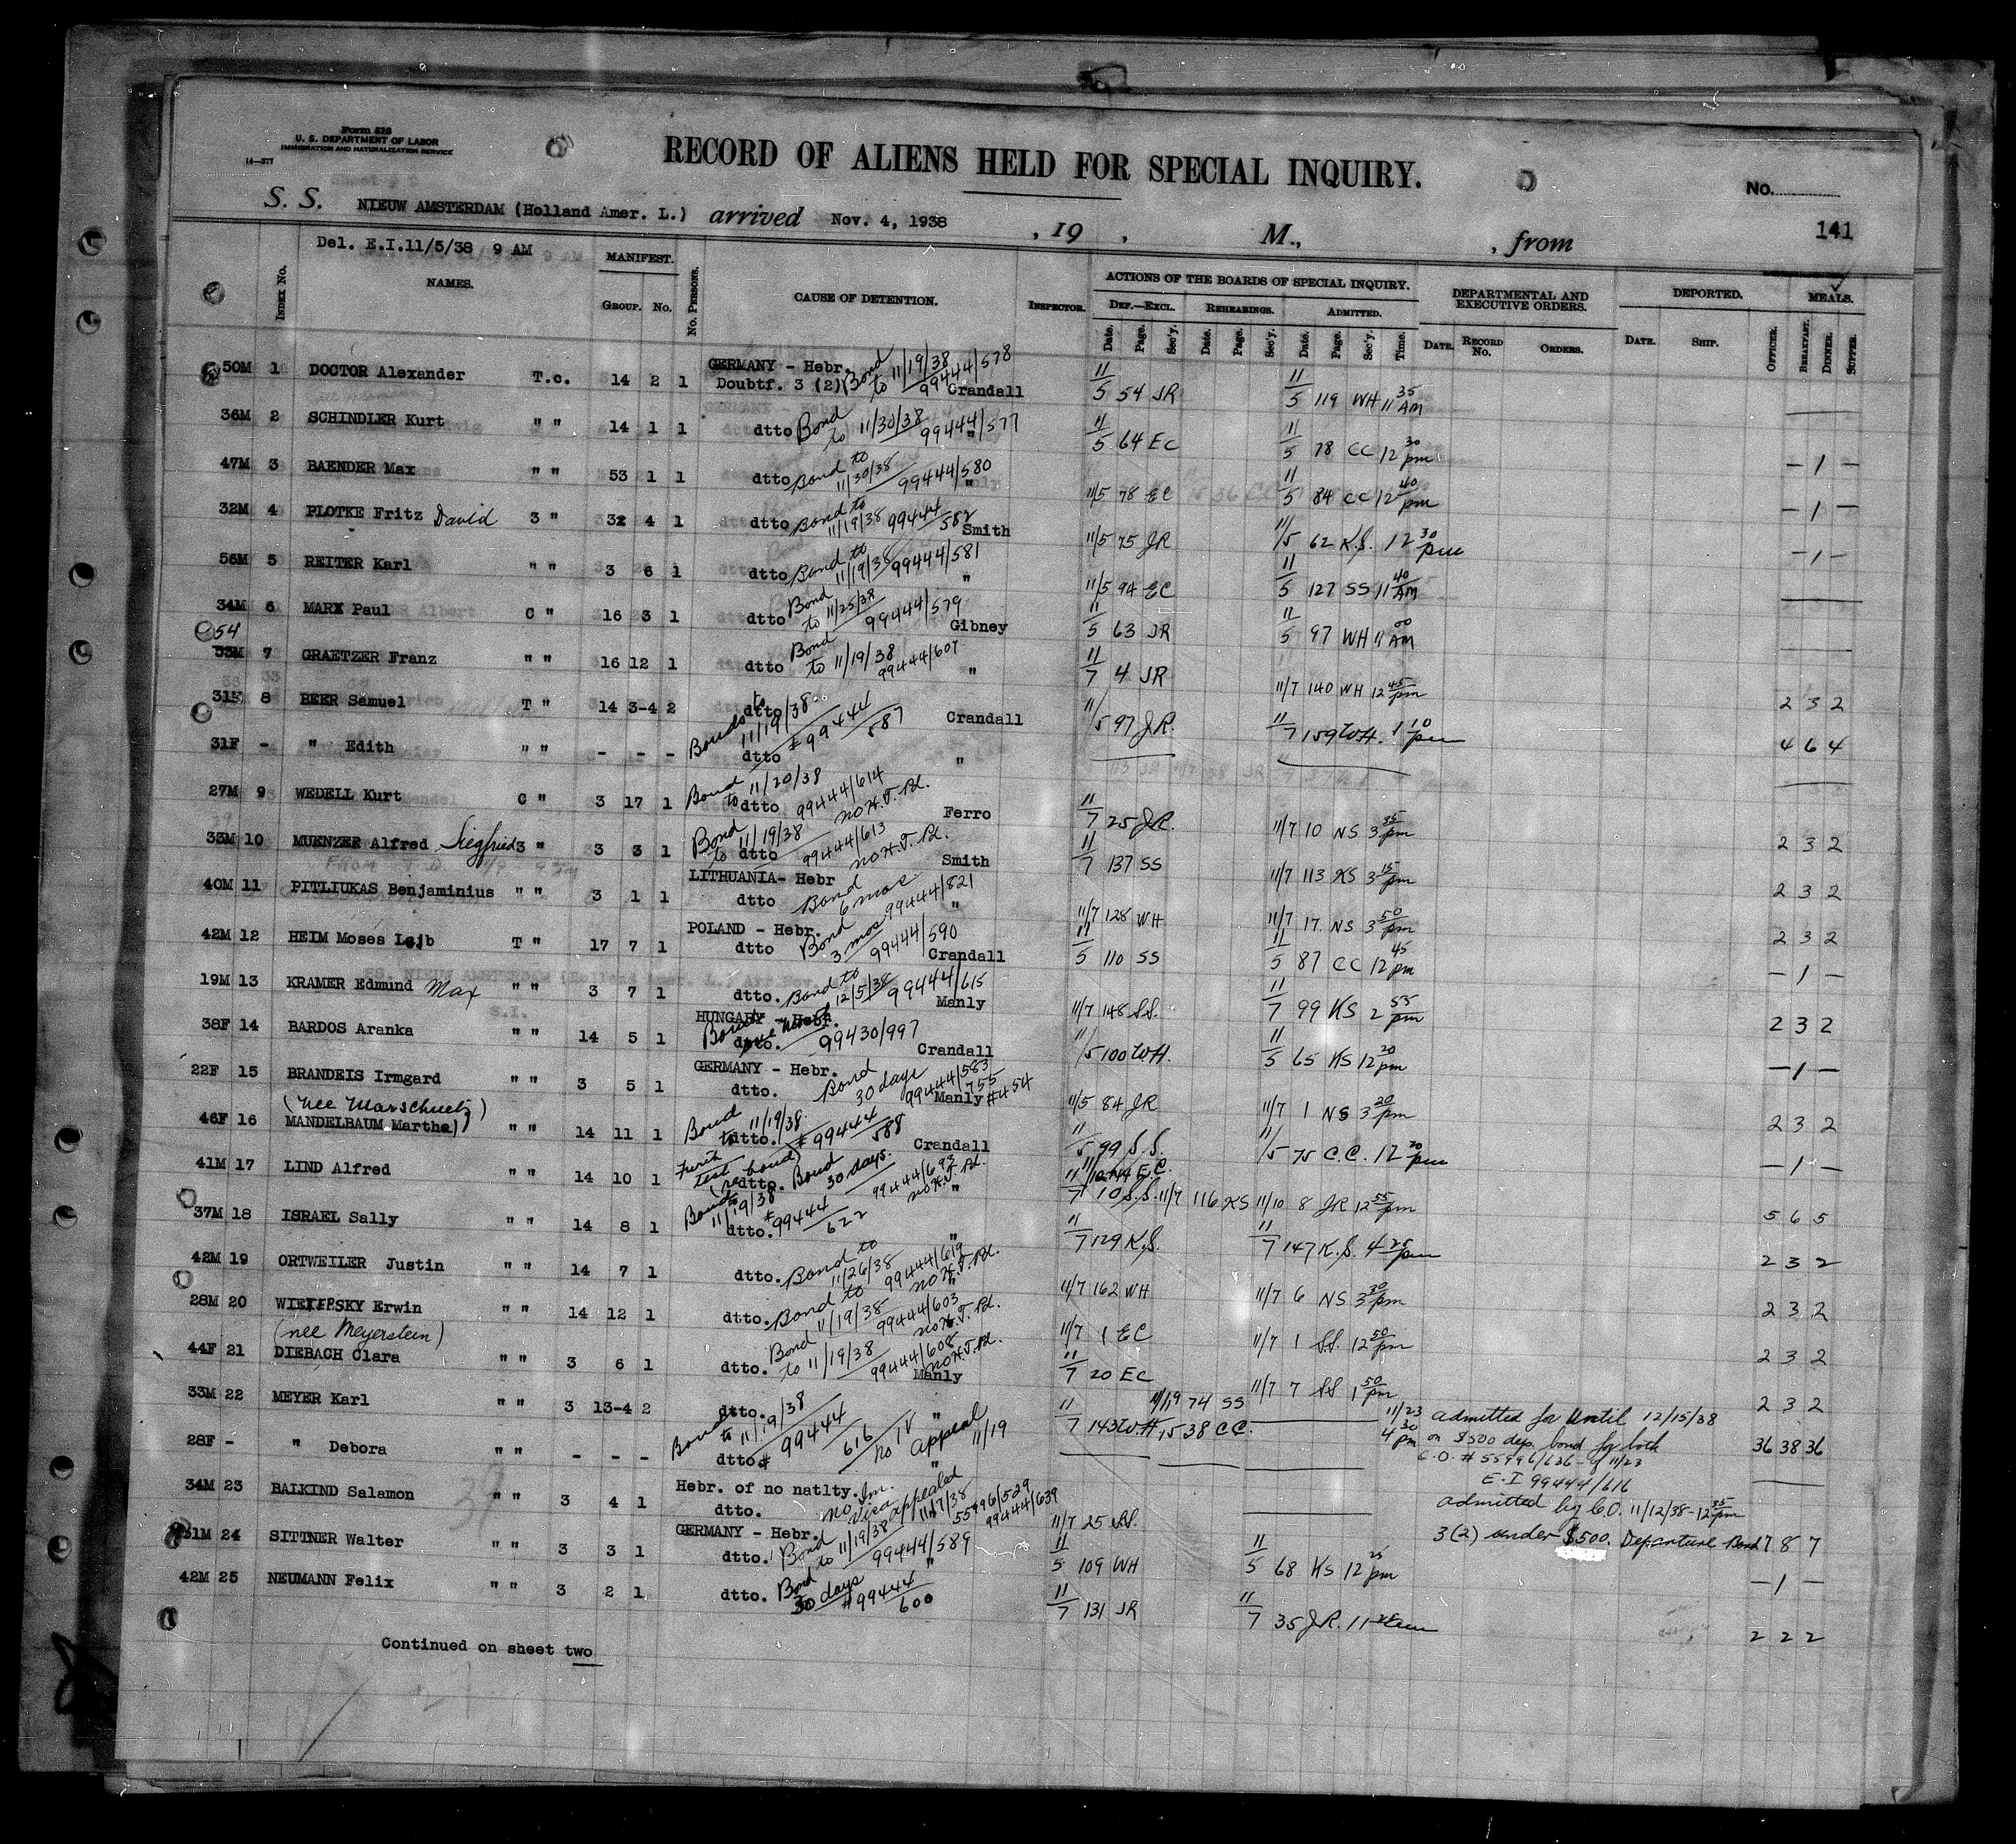 Form 518
U. S. DEPARTMENT OF LABOR
IMMIGRATION AND NATURALIZATION SERVICE
14—377
RECORD OF ALIENS HELD FOR SPECIAL INQUIRY.
No.
S. S. NIEUW AMSTERDAM (Holland Amer. L.) arrived Nov. 4, 1938 , 19 , M., , from 141
Del. E.I.11/5/38 9 AM
INDEX NO. NAMES. MANIFEST. GROUP. NO. NO. PERSONS. CAUSE OF DETENTION. INSPECTOR. ACTIONS OF THE BOARDS OF SPECIAL INQUIRY. DEPARTMENTAL AND EXECUTIVE ORDERS. DEPORTED. MEALS.
DEF.—EXCL. REHEARINGS. ADMITTED.
Date. Page. Sec'y. Date. Page. Sec'y. Date. Page. Sec'y. Time. DATE. RECORD NO. ORDERS. DATE. SHIP. OFFICER. BREAKFAST. DINNER. SUPPER.
50M 1 DOCTOR Alexander T.c. 14 2 1 GERMANY - Hebr. Doubtf. 3 (2) Bond to 11/19/38 99444/578 Crandall 11/5 54 JR 11/5 119 WH 11 35 AM
36M 2 SCHINDLER Kurt " " 14 1 1 dtto Bond to 11/30/38 99444/577 " 11/5 64 EC 11/5 78 CC 12 30 pm — 1 —
47M 3 BAENDER Max " " 53 1 1 dtto Bond to 11/30/38 99444/580 " 11/5 78 EC 11/5 84 CC 12 40 pm — 1 —
32M 4 PLOTKE Fritz David 3 " 32 4 1 dtto Bond to 11/19/38 99444/582 Smith 11/5 75 JR 11/5 62 K.S. 12 30 pm — 1 —
56M 5 REITER Karl " " 3 6 1 dtto Bond to 11/19/38 99444/581 " 11/5 94 EC 11/5 127 SS 11 40 AM
34M 6 MARX Paul C " 16 3 1 dtto Bond to 11/25/38 99444/579 Gibney 11/5 63 JR 11/5 97 WH 11 00 AM
54
53M 7 GRAETZER Franz " " 16 12 1 dtto Bond to 11/19/38 99444/607 " 11/7 4 JR 11/7 140 WH 12 45 pm 2 3 2
31M 8 BEER Samuel T " 14 3-4 2 dtto Bonds to 11/19/38 # 99444/587 Crandall 11/5 97 J.R. 11/7 159 W.H. 1 10 pm 4 6 4
31F - " Edith " " - - - dtto "
27M 9 WEDELL Kurt C " 3 17 1 Bond to 11/20/38 dtto 99444/614 no H.T. Pd. Ferro 11/7 25 J.R. 11/7 10 NS 3 35 pm 2 3 2
33M 10 MUENZER Alfred Siegfried 3 " 3 3 1 Bond to 11/19/38 dtto 99444/613 no H.T. Pd. Smith 11/7 137 SS 11/7 113 KS 3 15 pm 2 3 2
40M 11 PITLIUKAS Benjaminius " " 3 1 1 LITHUANIA- Hebr dtto Bond 6 mos 99444/821 " 11/7 128 WH 11/7 17 NS 3 50 pm 2 3 2
42M 12 HEIM Moses Lejb T " 17 7 1 POLAND - Hebr. dtto Bond 3 mos 99444/590 Crandall 11/5 110 SS 11/5 87 CC 12 45 pm — 1 —
19M 13 KRAMER Edmund Max " " 3 7 1 dtto. Bond to 12/5/38 99444/615 Manly 11/7 148 S.S. 11/7 99 KS 2 55 pm 2 3 2
38F 14 BARDOS Aranka " " 14 5 1 HUNGARY - Hebr. dtto. 99430/997 Crandall 11/5 100 W.H. 11/5 65 KS 12 20 pm — 1 —
22F 15 BRANDEIS Irmgard " " 3 5 1 GERMANY - Hebr. dtto. Bond 30 days 99444/583 755 Manly #454 11/5 84 JR 11/7 1 NS 3 20 pm 2 3 2
(nee Marschuetz)
46F 16 MANDELBAUM Martha " " 14 11 1 Bond to 11/19/38 dtto. # 99444/588 Crandall 11/5 99 S.S. 11/5 75 C.C. 12 20 pm — 1 —
41M 17 LIND Alfred " " 14 10 1 dtto. Bond 30 days. 99444/693 no H.T. Pd. " 11/7 10 S.S. 11/7 116 KS 11/10 8 JR 12 55 pm 5 6 5
37M 18 ISRAEL Sally " " 14 8 1 Bond to 11/19/38 dtto. # 99444/622 " 11/7 129 K.S. 11/7 147 K.S. 4 25 pm 2 3 2
42M 19 ORTWEILER Justin " " 14 7 1 dtto. Bond to 11/26/38 99444/619 no H.T. Pd. " 11/7 162 WH 11/7 6 NS 3 30 pm 2 3 2
28M 20 Erwin " " 14 12 1 dtto. Bond to 11/19/38 99444/603 no H.T. Pd. 11/7 1 EC 11/7 1 SS. 12 50 pm 2 3 2
(nee Meyerstein)
44F 21 DIEBACH Clara " " 3 6 1 dtto. Bond to 11/19/38 99444/608 no H.T. Pd. Manly 11/7 20 EC 11/7 7 SS 1 50 pm 2 3 2
33M 22 MEYER Karl " " 3 13-4 2 dtto. Bond to 11/19/38 # 99444/616 no appeal 11/19 " 11/7 143 W.H. 11/19 74 SS 15 38 CC. 11/23 4 30 pm admitted for until 12/15/38 on $500 dep. bond for both C.O. # 55996/636- of 11/23 E.I 99444/616 36 38 36
28F - " Debora " " - - - dtto. "
34M 23 BALKIND Salamon " " 3 4 1 Hebr. of no natlty. dtto. no Im. Visa appealed 11/7/38 55996/529 99444/639 11/7 25 SS. admitted by C.O. 11/12/38-12 35 pm 3 (2) under $500. Departure Bond 7 8 7
51M 24 SITTNER Walter " " 3 3 1 GERMANY - Hebr. dtto. Bond to 11/19/38 99444/589 " 11/5 109 WH 11/5 68 KS 12 25 pm — 1 —
42M 25 NEUMANN Felix " " 3 2 1 dtto. Bond 30 days # 99444/600 11/7 131 JR 11/7 35 J.R. 11 2 2 2
Continued on sheet two